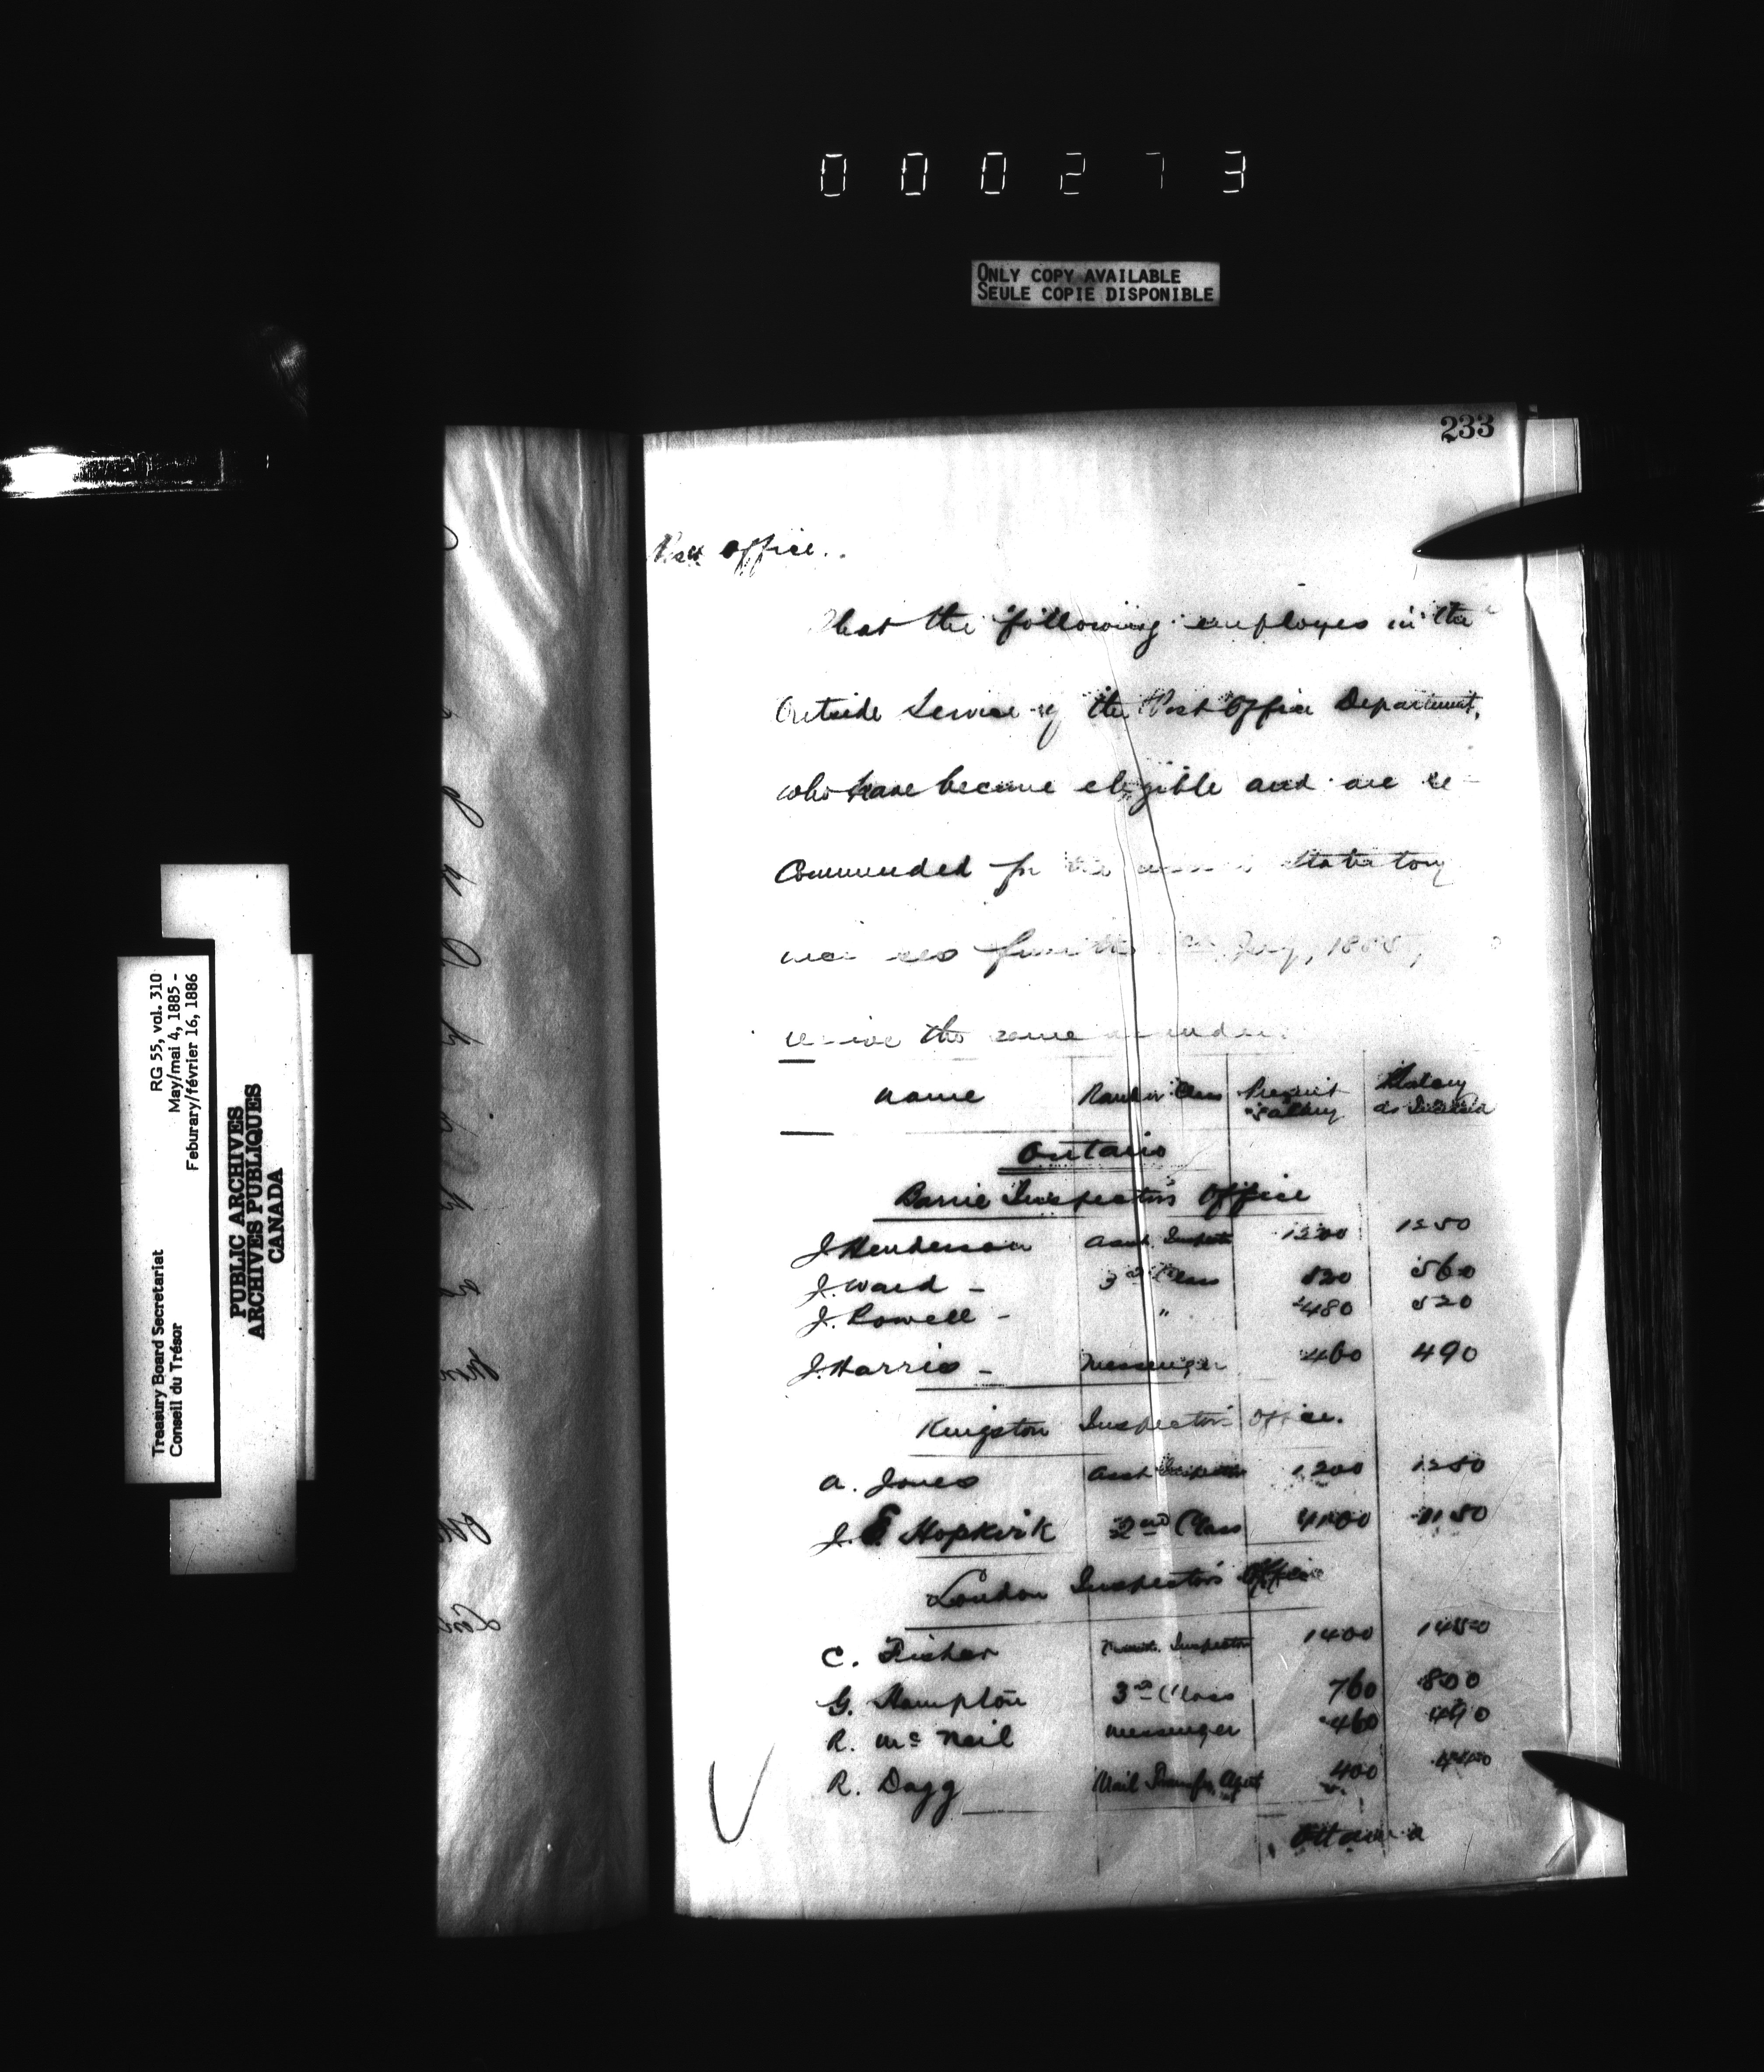 000273
ONLY COPY AVAILABLE
SEULE COPIE DISPONIBLE
RG 55, vol. 310
May/mai 4, 1885 -
Feburary/février 16, 1886
Treasury Board Secretariat
Conseil du Trésor
PUBLIC ARCHIVES
ARCHIVES PUBLIQUES
CANADA
233
Post Office.
That the following employes in the
Outside Service of the Post Office Department,
who have become eligible and are re-
commended for statutory
July, 1885,
the same
Name Rank or Class Present Salary Salary as Increased
Ontario
Barrie Inspector's Office
J Henderson Asst. Inspector 1200 1250
J. Ward - 3rd Class 520 560
J. Powell - " 480 520
J. Harris - Messenger 460 490
Kingston Inspector's Office.
A. Jones Asst Inspector 1,200 1250
J. Hopkirk 2nd Class 1100 1150
London Inspector's Office
C. Fisher Inspector 1400 1450
G. Hampton 3rd Class 760 800
R. McNeil Messenger 460 490
R. Dagg Mail Transfer Agent 400 440
Ottawa